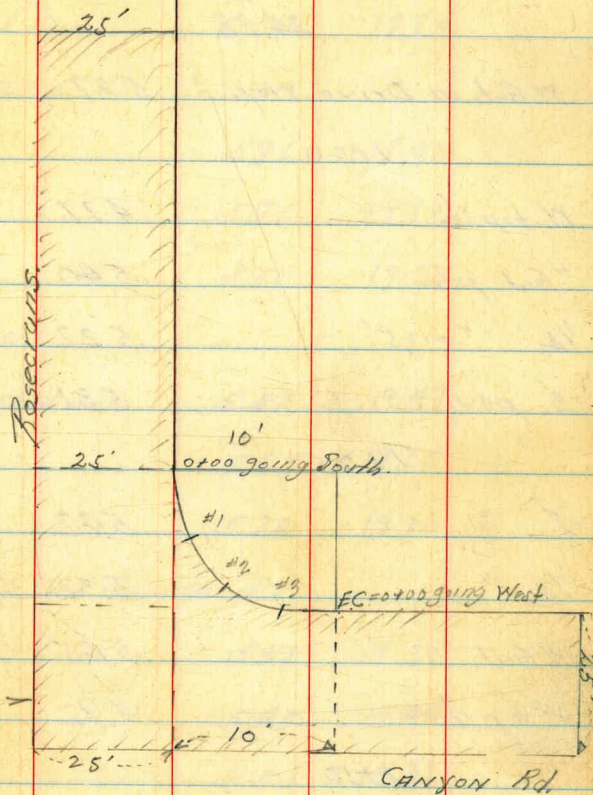 25'
Rosecrans.
10'
25' 0+00 going South.
#1
#2
#3
E.C=0+00 going West.
25'
10'
25'
CANYON Rd.